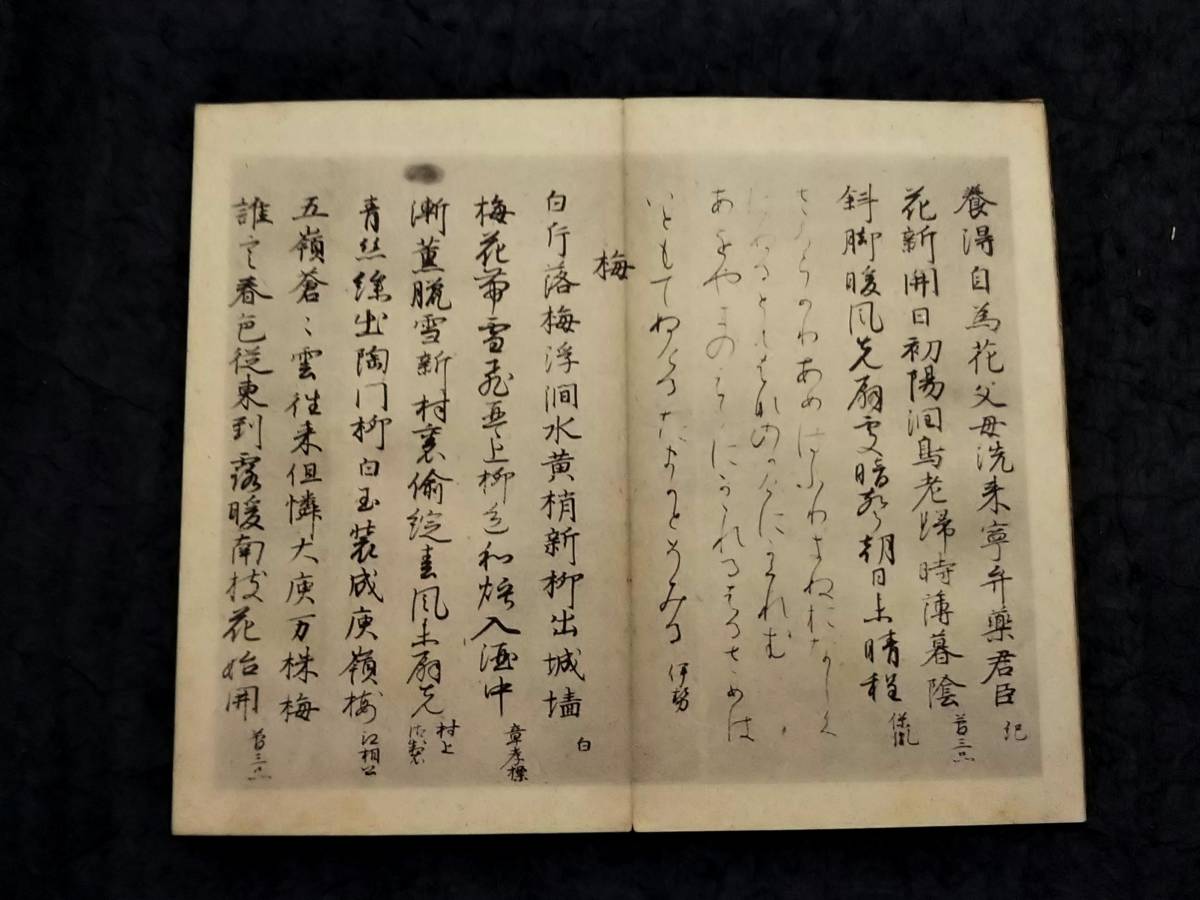 養得自為花父母洗来寧弁薬君臣 紀
花新開日初陽潤鳥老帰時薄暮陰 菅三品
斜脚暖風先扇処暗声朝日未晴程 保胤
さくらかりあめはふりきぬおなしく
はぬるともはなのかけにかくれむ
あをやきのえたにかゝれるはるさめは
いともてぬけるたまかとそみる 伊勢
梅
白片落梅浮澗水黄梢新柳出城墻 白
梅花帯雪飛琴上柳色和煙入酒中 章孝標
漸薫臘雪新封裏偸綻春風未扇先 村上御製
青糸繰出陶門柳白玉装成庾嶺梅 江相公
五嶺蒼〻雲往来但憐大庾万株梅
誰言春色従東到露暖南枝花始開 菅三品